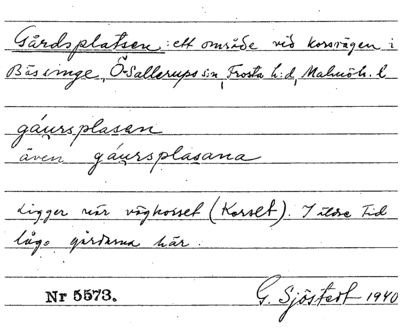 Gårdsplatsen: ett område vid korsvägen i
Bäsinge, Ö. Sallerups sn, Frosta h:d, Malmöh. l.
gáu̯rsplasen
även gáu̯rsplasana
Ligger när vägkorset (Korset). I äldre tid
lågo gårdarna här.
Nr 5573. G. Sjöstedt 1940